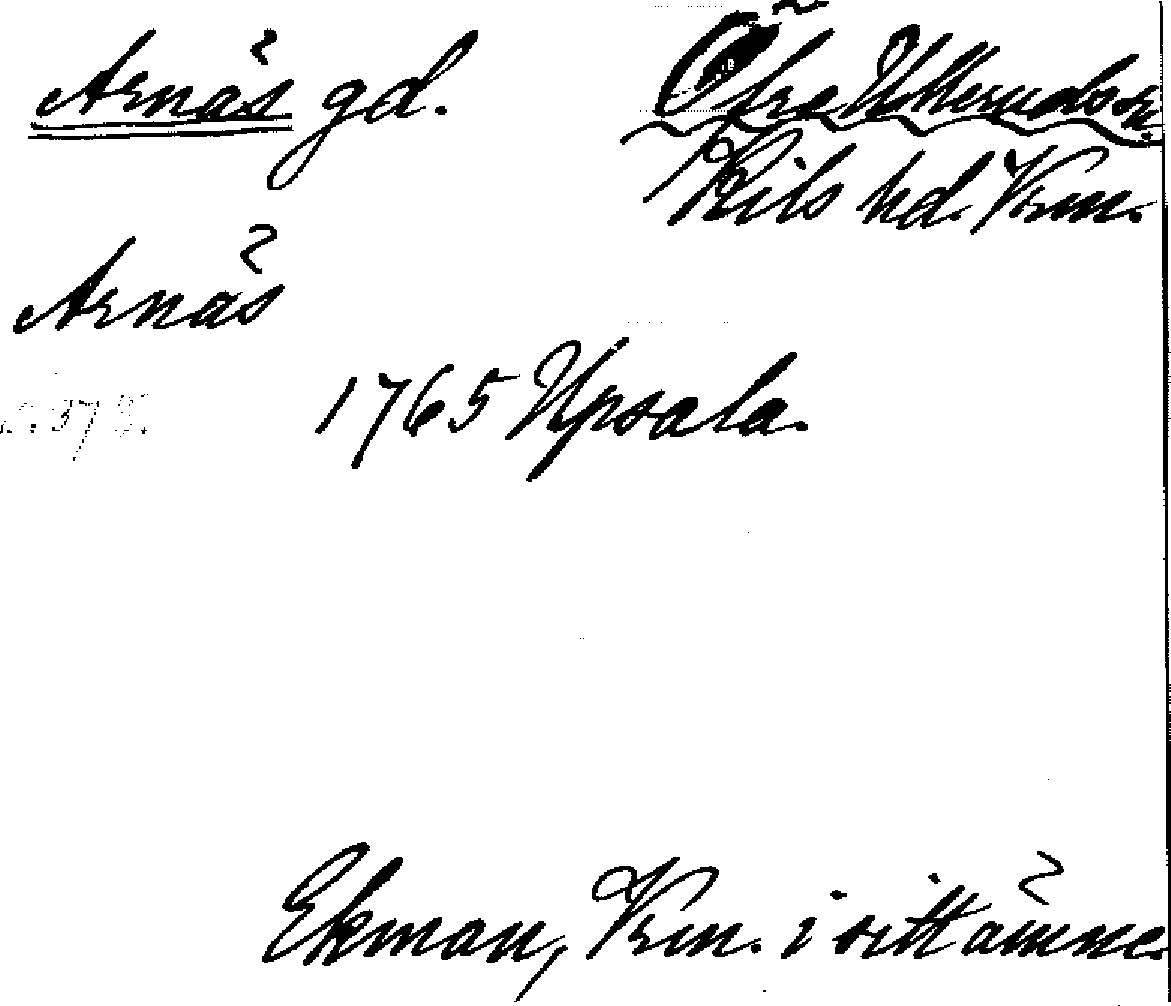 Arnäs gd.
Öfre Ulleruds sn.
Kils hd. Vrm.
Arnäs
1765 Upsala.
Ekman, Vrm. i sitt ämne.